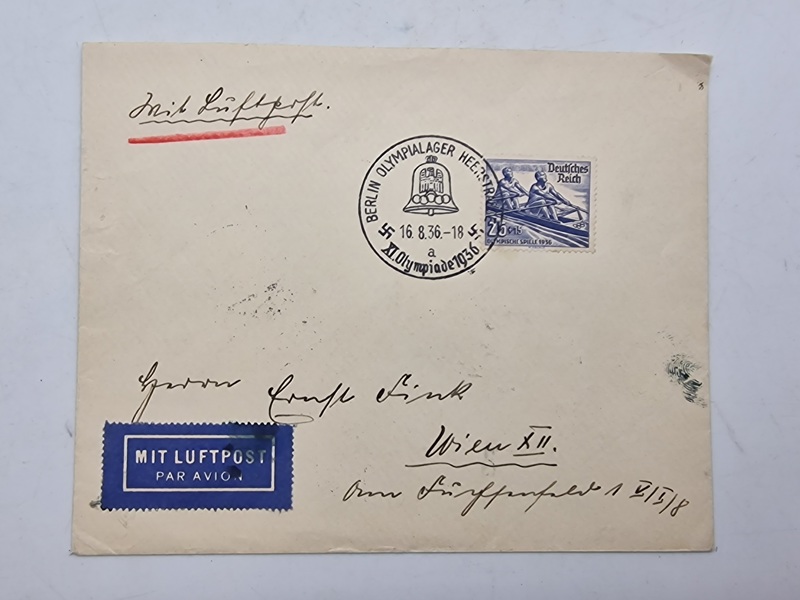 Mit Luftpost.
BERLIN OLYMPIALAGER HEERSTR
16.8.36.-18
a
XI.Olympiade1936
Deutsches
Reich
25
OLYMPISCHE SPIELE 1936
Herrn Ernst Fink
Wien XII.
Am Fuchsenfeld 1 V/I/8
MIT LUFTPOST
PAR AVION